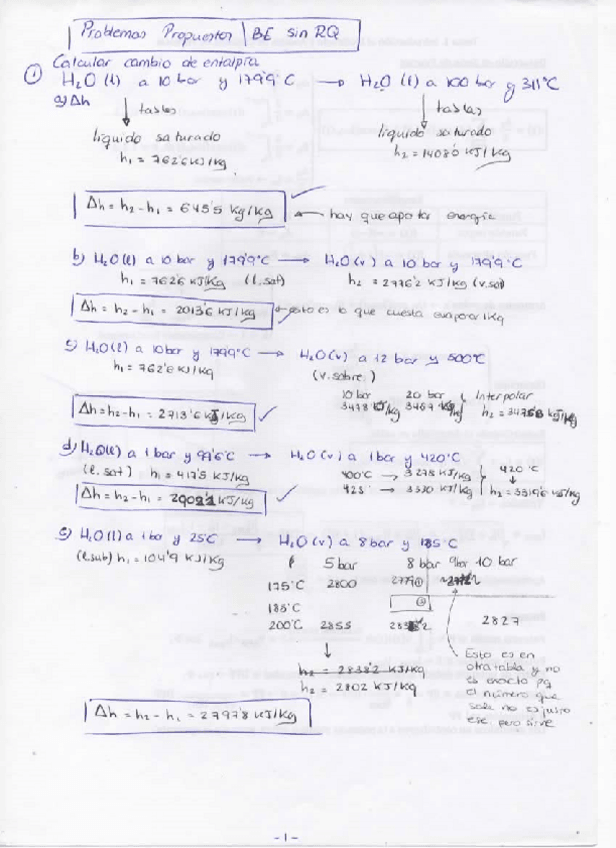 Problemas Propuestos | BE sin RQ
Calcular cambio de entalpía
① H₂O (l) a 10 bar y 179'9°C → H₂O (l) a 100 bar y 311°C
a) Δh
↓ tablas ↓ tablas
líquido saturado líquido saturado
h₁ = 762'6 KJ/Kg h₂ = 1408'0 KJ/Kg
Δh = h₂ - h₁ = 645'5 Kg/Kg ✓
← hay que aportar energía
b) H₂O(l) a 10 bar y 179'9°C → H₂O(v) a 10 bar y 179'9°C
h₁ = 762'6 KJ/Kg (l.sat) h₂ = 2776'2 KJ/Kg (v.sat)
Δh = h₂ - h₁ = 2013'6 KJ/Kg ← esto es lo que cuesta evaporar 1Kg
c) H₂O(l) a 10bar y 179'9°C → H₂O(v) a 12 bar y 500°C
h₁ = 762'6 KJ/Kg (v.sobre.)
10 bar 20 bar Interpolar
3478 KJ/Kg 3467 KJ/Kg h₂ = 3475'8 KJ/Kg
Δh = h₂ - h₁ = 2713'6 KJ/Kg ✓
d) H₂O(l) a 1 bar y 99'6°C → H₂O (v) a 1 bar y 420°C
(l. sat) h₁ = 417'5 KJ/Kg 400°C → 3278 KJ/Kg 420°C
425 → 3330 KJ/Kg h₂ = 3319'6 KJ/Kg
Δh = h₂ - h₁ = 2902'1 KJ/Kg ✓
e) H₂O(l) a 1 bar y 25°C → H₂O (v) a 8 bar y 185°C
(l.sub) h₁ = 104'9 KJ/Kg 5 bar 8 bar 10 bar
175°C 2800
185°C
200°C 2855 2827
↓
h₂ = 2838'2 KJ/Kg
h₂ = 2802 KJ/Kg
Esto es en
otra tabla y no
es exacto pq
el número que
sale no es justo
ese pero sirve
Δh = h₂ - h₁ = 2797'8 KJ/Kg
- 1 -